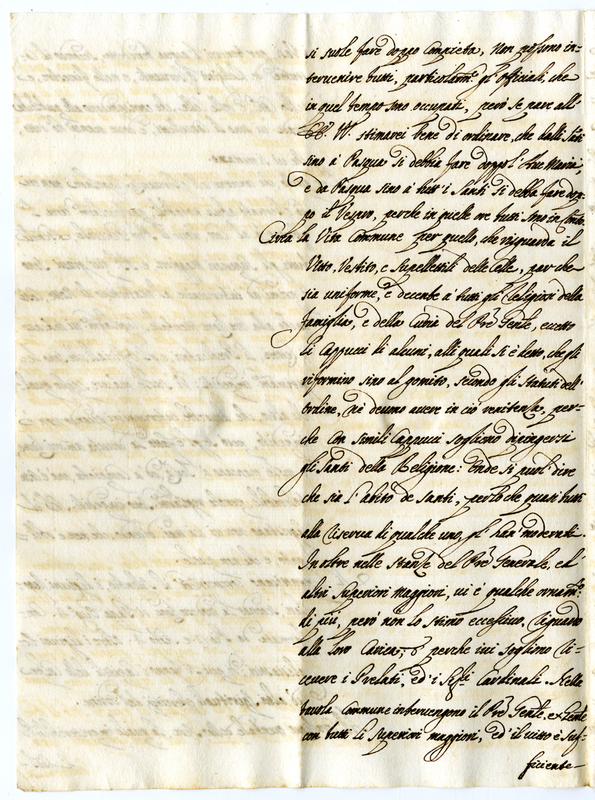 si suole fare doppo Compieta, Non possono in-
tervenire tutti, particolarm.e gl'officiali, che
in quel tempo sono occupati, però se pare all'
EE. VV. stimarei bene di ordinare, che dalli Santi
sino à Pasqua si debbia fare doppo l'Ave Maria,
e da Pasqua sino à tutt'i Santi si debba fare dop-
po il Vespro, perche in quelle ore tutti sono in
Circa la Vita Commune per quello, che riguarda il
Vitto, Vestito, e Supellettili delle Celle, par che
sia uniforme, e decente à tutti gli Religiosi della
famiglia, e della Curia del Pre Gente, eccetto
li Cappucci di alcuni, alli quali si è detto, che gli
riformino sino al gomito, secondo gli Statuti dell'
Ordine, nè deuono auere in ciò renitenza, per-
che con simili Cappucci sogliono dipingersi
gli Santi della Religione: Onde si puol dire
che sia l'abito de Santi, perlo che quasi tutti
alla riserua di qualche uno, gl'han' moderati.
In oltre nelle stanze del Pre Generale, et
altri Superiori Maggiori, ui è qualche ornam.to
di più, però non lo stimo eccessiuo, riguardo
alla loro Carica, e perche iui sogliono ri-
ceuere i Prelati, ed'i Sig.ri Cardinali. Nella
tauola Commune interuengono il Pre Gente, ex Gente
con tutti li Superiori maggiori, ed'il uitto è suf-
ficiente